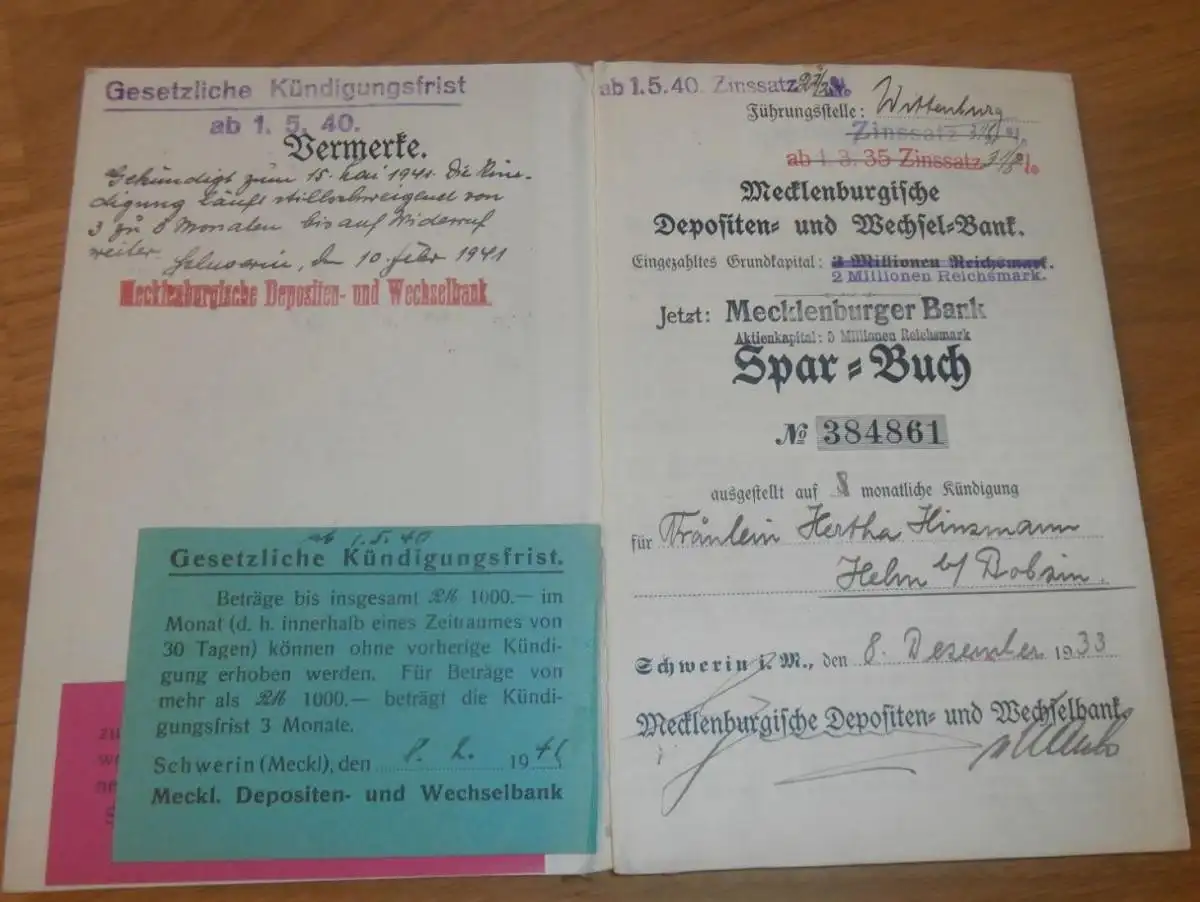 Gesetzliche Kündigungsfrist
ab 1. 5. 40.
Vermerke.
Gekündigt zum 15. Mai 1941. Die Kün-
digung läuft stillschweigend von
3 zu 3 Monaten bis auf Widerruf
weiter. Schwerin, den 10. Febr 1941
Mecklenburgische Depositen- und Wechselbank.
ab 1. 5. 40
Gesetzliche Kündigungsfrist.
Beträge bis insgesamt RM 1000.— im
Monat (d. h. innerhalb eines Zeitraumes von
30 Tagen) können ohne vorherige Kündi-
gung erhoben werden. Für Beträge von
mehr als RM 1000.— beträgt die Kündi-
gungsfrist 3 Monate.
Schwerin (Meckl), den 8. 2. 19
Meckl. Depositen- und Wechselbank
zu
we
ne
S
ab 1.5.40. Zinssatz %
Führungsstelle: Wittenburg
Zinssatz %
ab 1.3.35 Zinssatz %
Mecklenburgische
Depositen- und Wechsel-Bank.
Eingezahltes Grundkapital: 3 Millionen Reichsmark.
2 Millionen Reichsmark.
Jetzt: Mecklenburger Bank
Aktienkapital: 3 Millionen Reichsmark
Spar-Buch
№ 384861
ausgestellt auf monatliche Kündigung
für Fräulein Hertha Hinzmann
Helm b/ Dobzin.
Schwerin i. M., den 8. Dezember 1933
Mecklenburgische Depositen- und Wechselbank.